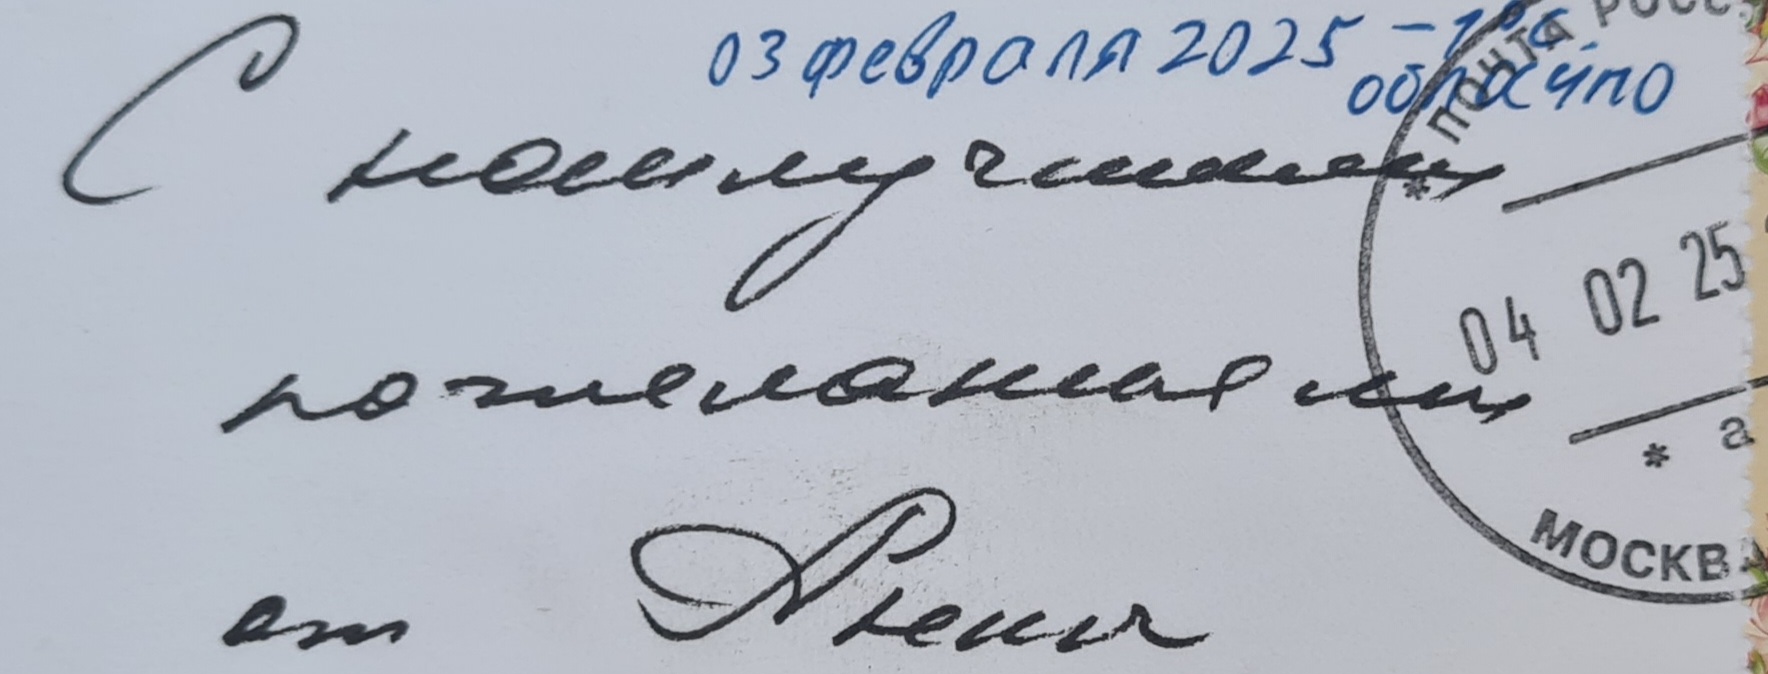 03 февраля 2025 -1°C
облачно
С наилучшими
пожеланиями
от
ПОЧТА РОСС
04 02 25
а
МОСКВА